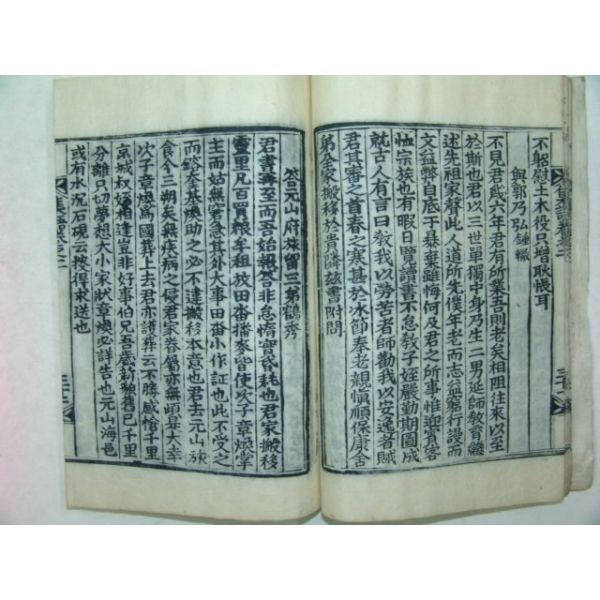 不躬慰土木役只增耿悵耳
與郭乃弘鍾緇
不見君貳六年君有所業吾則老矣相阻往來以至
於斯也君以三世單獨中身乃生二男延師教育繼
述先祖家聲此人道所先僕年老而志益
文益弊自底于暴棄雖悔何及君之所事惟迎賓客
恤宗族也有暇日覽讀書不怠教子姪嚴勤期圖成
就古人有言曰教我以勞苦者師勸我以安逸者賊
君其審之首春之寒甚於冰節奉老親慎順保康舍
弟全家搬移於貴隣玆書附問
答元山府旅留三弟鶴秀
君書無至而吾始報答非怠惰實昏耗也君家搬移
靈里凡百買粮牟租放田畓播麥皆使次子章煥掌
主而姑無窘急其外大事田畓小作証也此不受之
而終奎基煥助之必不違搬移本意也君去元山旅
食今三朔矣無疾病之侵君家眷屬亦無頉寔大幸
次子章煥爲國葬上去君亦護葬云不勝感愴千里
京城叔姪相逢豈非好事伯兄吾歲前舊已千里
分離只切夢想大小家狀章煥必詳告也元山海邑
或有水沉石硯云搜得來送也